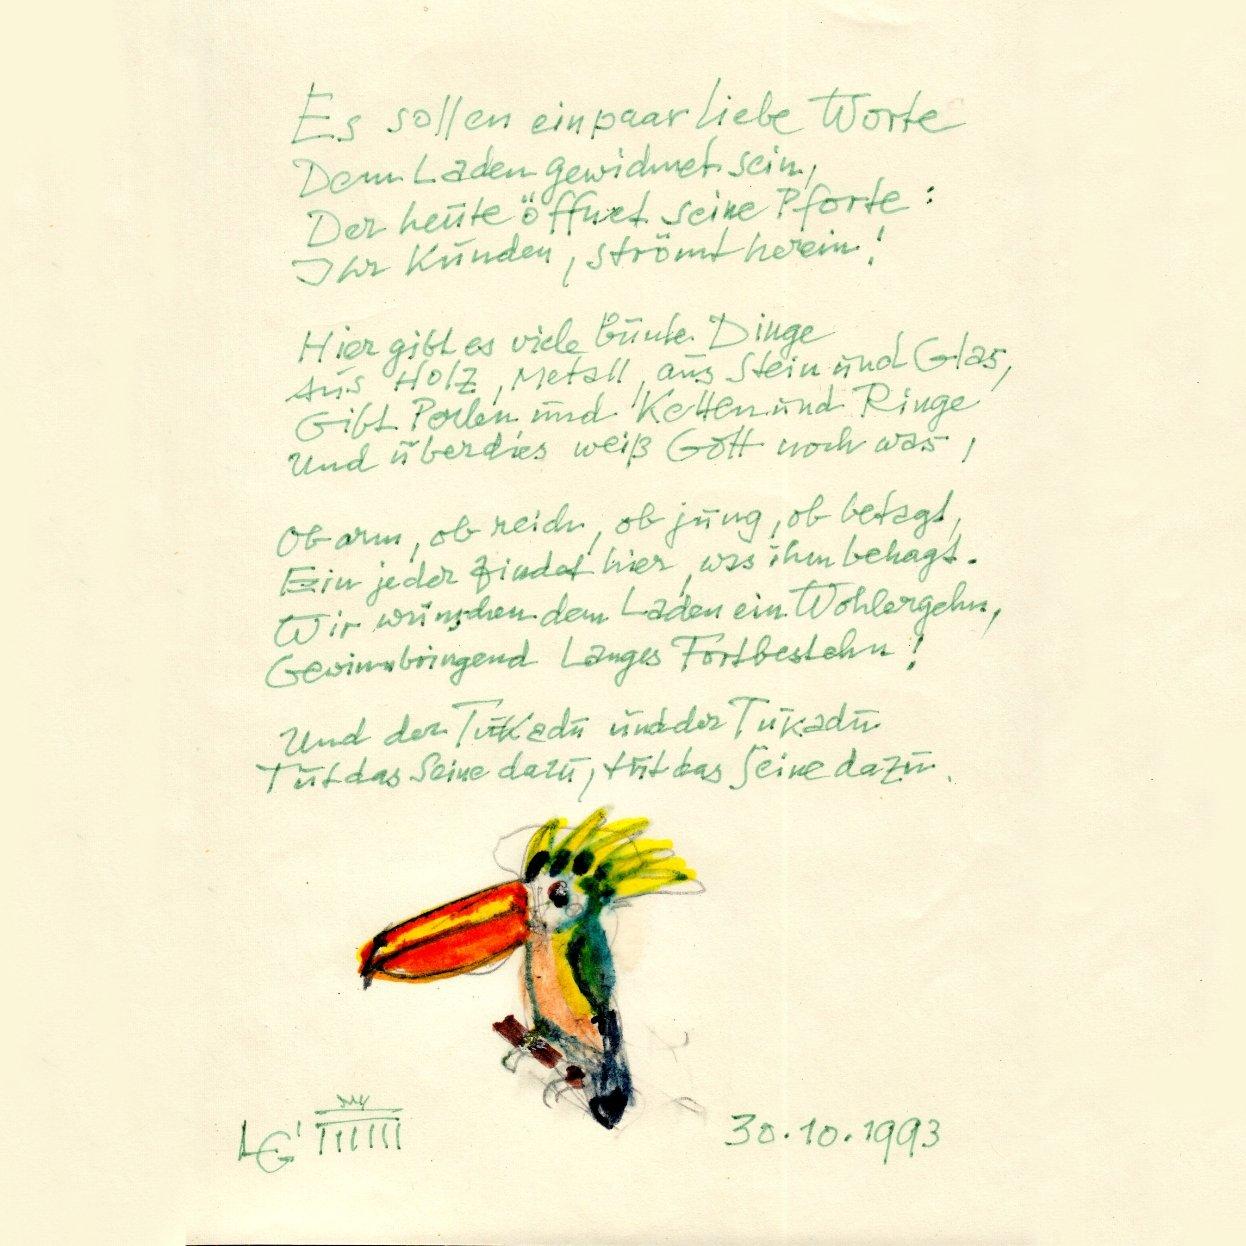 Es sollen ein paar liebe Worte
Dem Laden gewidmet sein,
Der heute öffnet seine Pforte:
Ihr Kunden, strömt herein!
Hier gibt es viele bunte Dinge
Aus Holz, Metall, aus Stein und Glas,
Gibt Perlen und Ketten und Ringe
Und überdies weiß Gott noch was,
Ob arm, ob reich, ob jung, ob betagt,
Ein jeder findet hier, was ihm behagt.
Wir wünschen dem Laden ein Wohlergehn,
Gewinnbringend Langes Fortbestehn!
Und der Tukadu und der Tukadu
Tut das Seine dazu, tut das Seine dazu.
LG'
30.10.1993